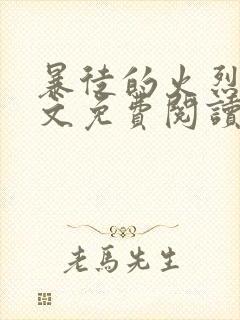 暴徒的火烈
文免費閱讀
老馬先生